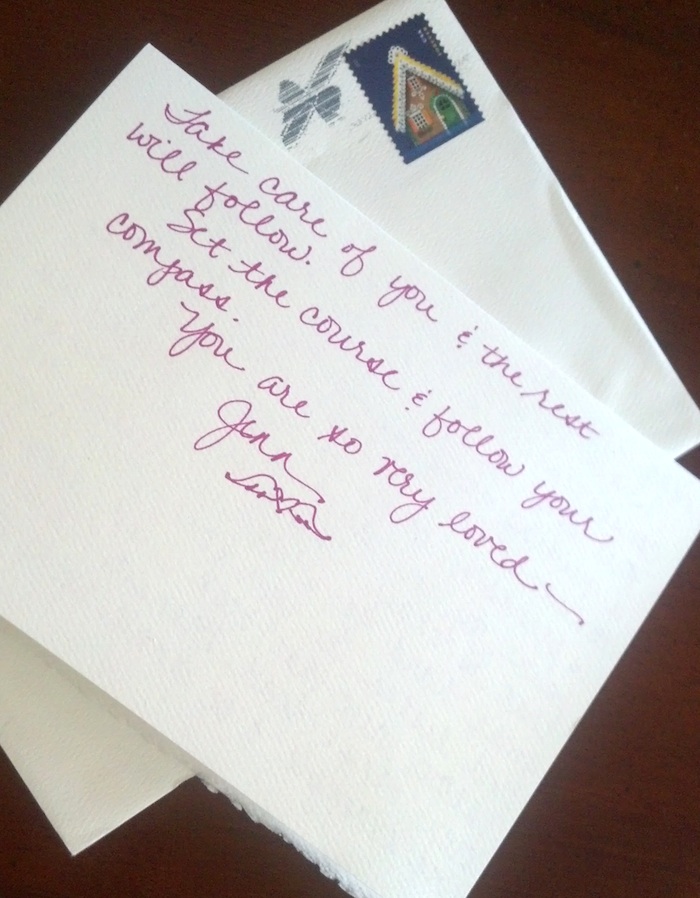 Take care of you & the rest
will follow.
Set the course & follow your
compass.
You are so very loved~
Jenn